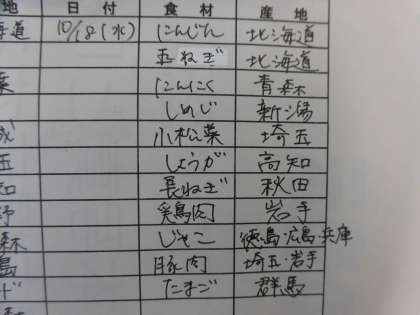 地 日付 食材 産地
海道 10/18(水) にんじん 北海道
玉ねぎ 北海道
葉 にんにく 青森
しめじ 新潟
城 小松菜 埼玉
玉 しょうが 高知
知 長ねぎ 秋田
野 鶏肉 岩手
森 じゃこ 徳島・広島・兵庫
島 豚肉 埼玉・岩手
ド たまご 群馬